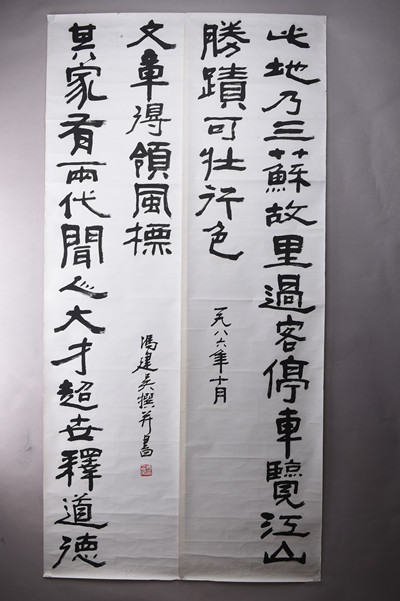 此地乃三蘇故里過客停車覽江山
勝蹟可壯行色
一九八六年十月
其家有兩代聞人大才超世釋道德
文章得領風標
馮建吳撰并書